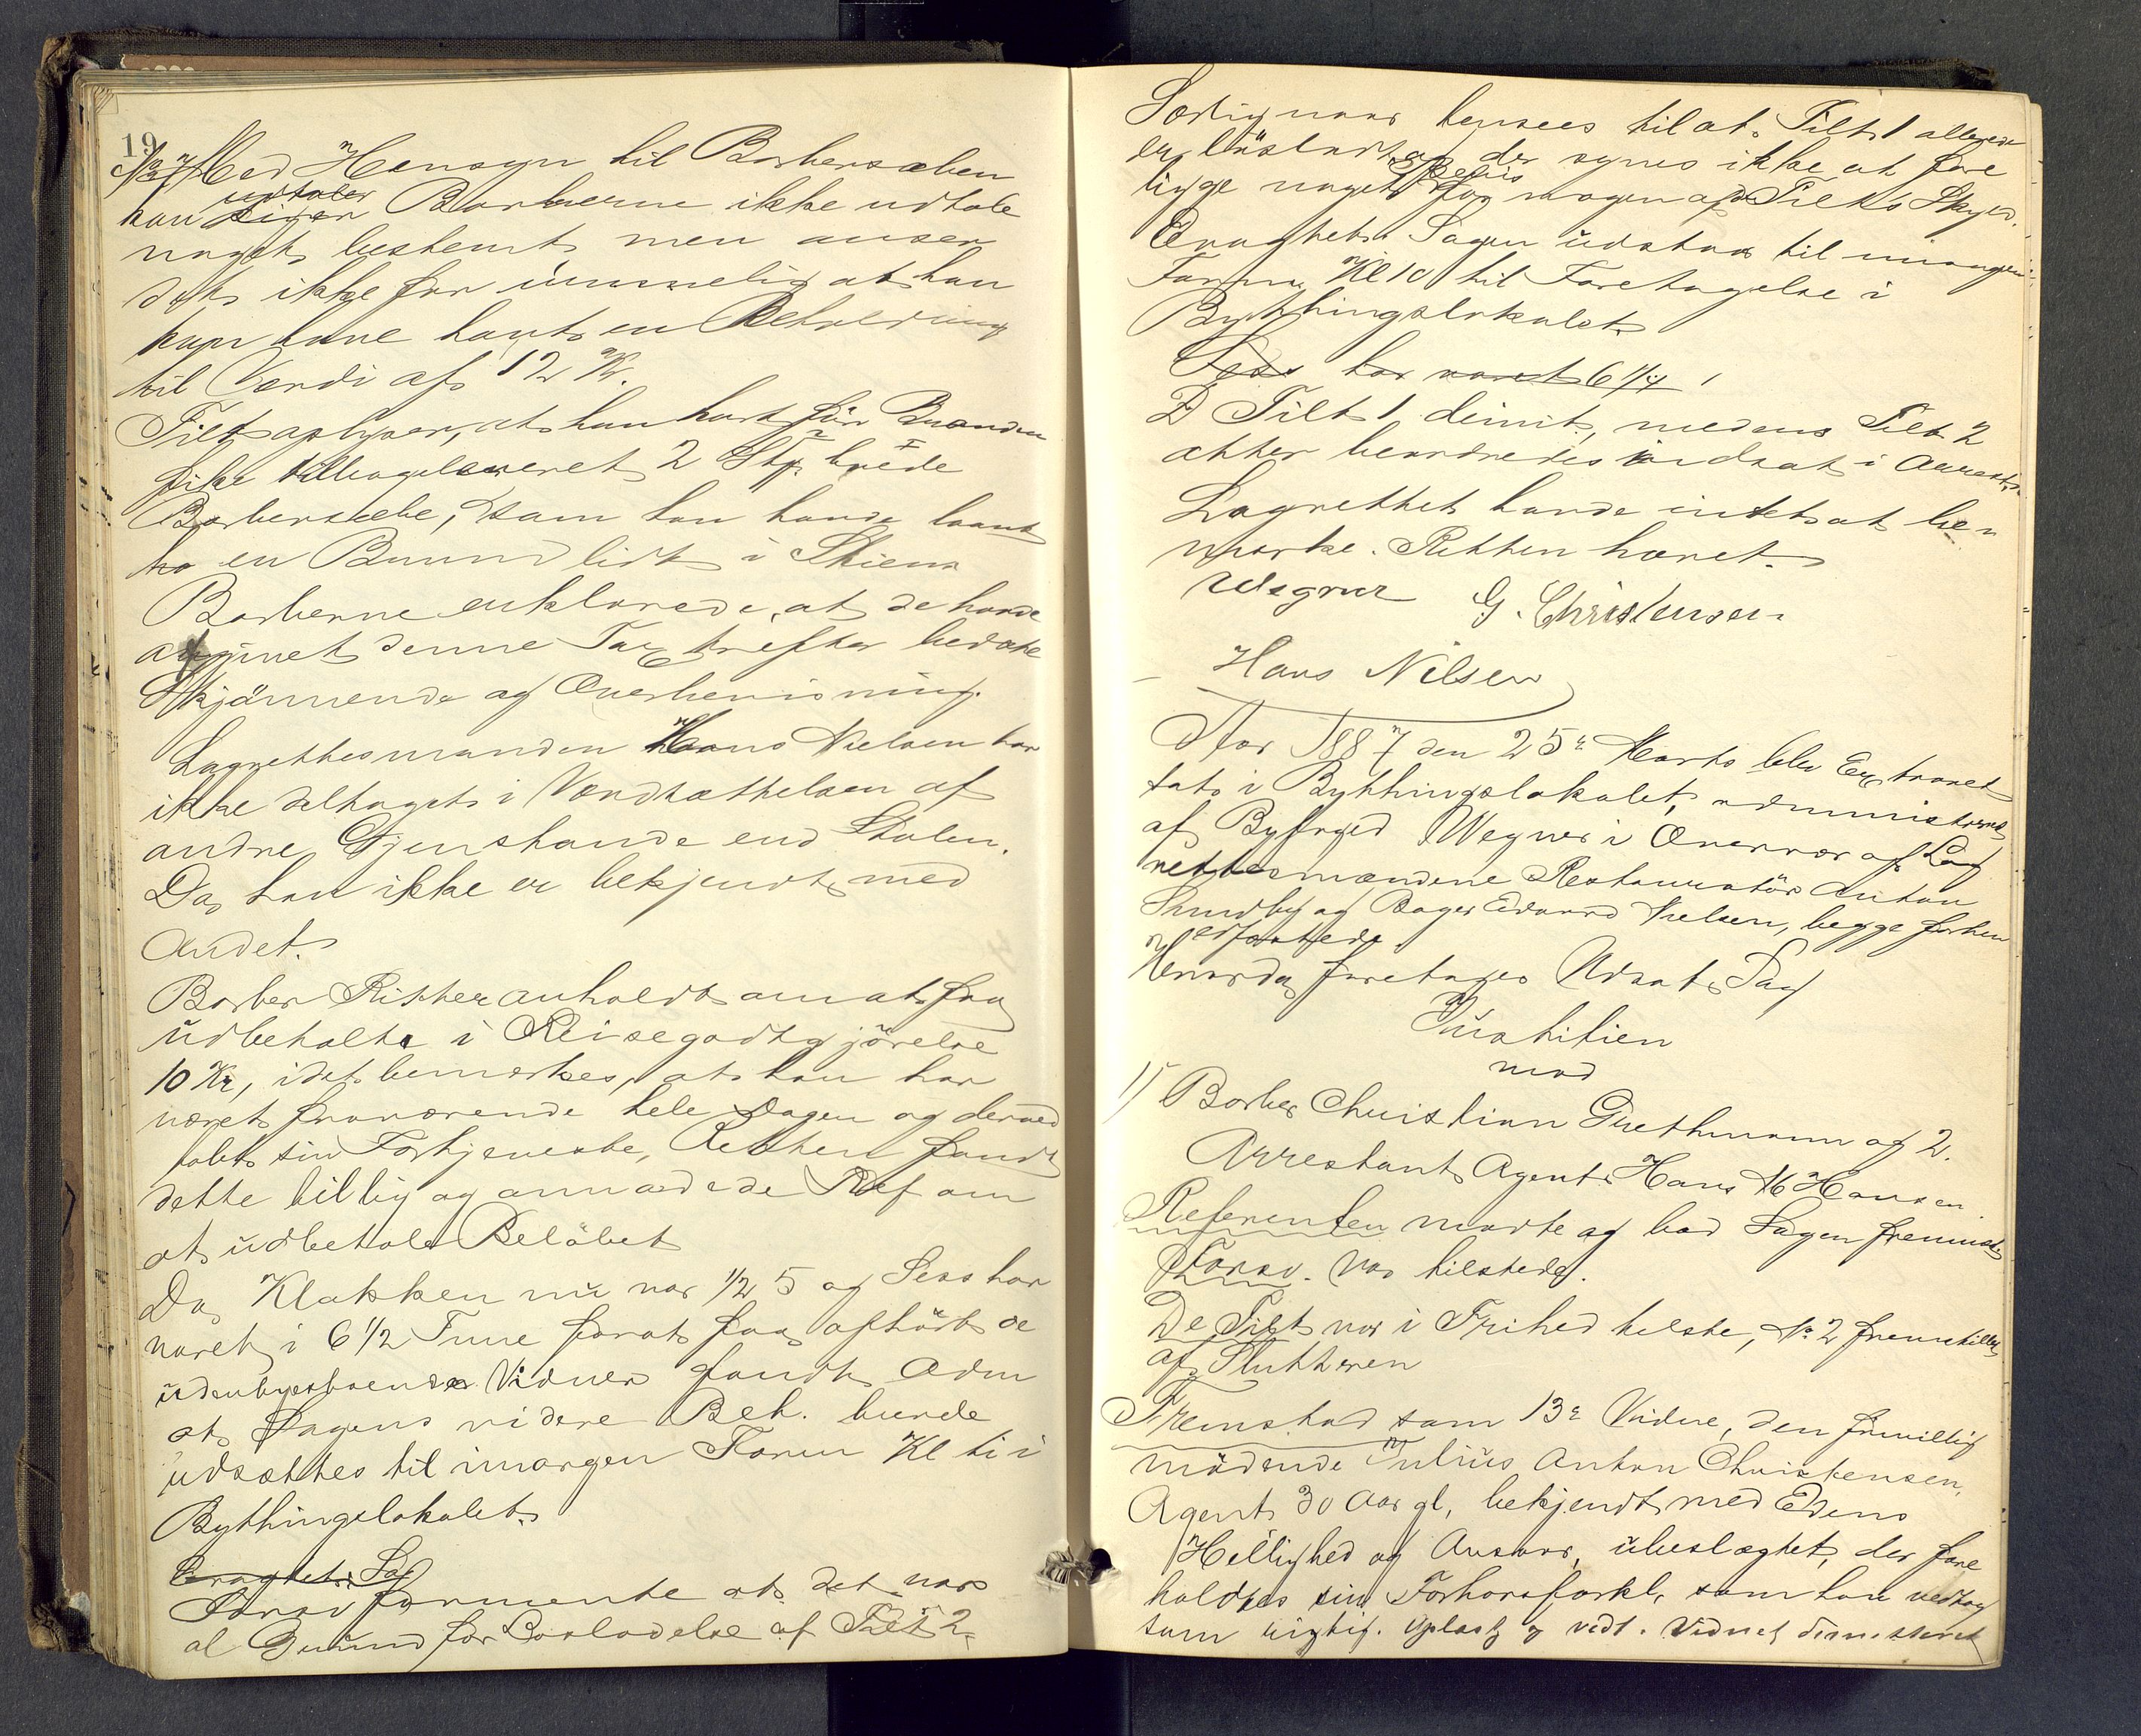 19
Med Hensyn til Barbersæben
kan udtaler Barberne ikke udtale
noget bestemt, men anser
det ikke for umuelig at han
kan have havt en Beholdning
til Værdi af 12 Kr.
Tilt oplyser, at han kort før Branden
fik tilbagelevert 2 Stkr. hvide
Barbersæbe, som han havde laant
en Bunndlidt i Skien
Barberne erklærede, at de havde
afgivet denne Taxt efter bedste
Skjønnende og Overbevisning.
Lagrettesmanden Hans Nielsen har
ikke deltaget i Værdsættelsen af
andre Gjenstande end Stolen.
Da han ikke er bekjendt med
Andet.
Barber Ritter anholdt om at faa
udbetalt i Reisegodtgjørelse
10 Kr, idet bemærkes, at han har
været fraværende hele Dagen og derved
tabt sin Fortjeneste, Retten fandt
dette billig og anmodede Ref om
at udbetale Beløbet
Da Klokken nu var 1/2 5 og Sess har
varet i 6 1/2 Time forat faa afhørt de
udenbyesboende Vidner fandt Adm
at Sagens videre Beh. burde
udsættes til imorgen Form Kl ti i
Bythingslokalet.
Eragtet: Sag
Forsv formente at det var
al Grund for Løsladelse af Tilt 2,
Særlig naar hensees til at Tilt 1 allerede
er løsladt og der synes ikke at fore
ligge noget Bevis for nogen af Tilts Skyld.
Eragtet: Sagen udstaar til imorgen
Form Kl 10 til Foretagelse i
Bythingslokalet
Sess har varet 6 1/4
D Tilt 1 dimit, medens Tilt 2
atter beordredes indsat i Arrest.
Lagrettet havde intet at be-
mærke. Retten hævet.
Wegner G. Christensen
Hans Nilsen
Aar 1887 den 25de Marts blev Extraret
sat i Bythingslokalet, administreret
af Byfoged Wegner i Overvær af Lag
rettesmændene Restauratør Anton
Sundby og Bager Edvard Nielsen, begge forhen
edfæstede
Hvorda foretages Udsat Sag
Justitien
mod
1) Barber Christian Guethmann og 2.
Arrestant, Agent Hans M Hansen.
Referenten mødte og bad Sagen fremmet.
Forsv. var tilstede.
De Tilt var i Frihed tilste, No 2 fremstillet
af Slutteren
Fremstod som 13de Vidne, den frivillig
mødende Julius Anton Christensen,
Agent, 30 Aar gl, bekjendt med Edens
Hellighed og Ansvar, ubeslægtet, der fore
holdtes sin Forhørsforkl, som han vedtog
som rigtig. Oplæst og vedt. Vidnet dimitteret